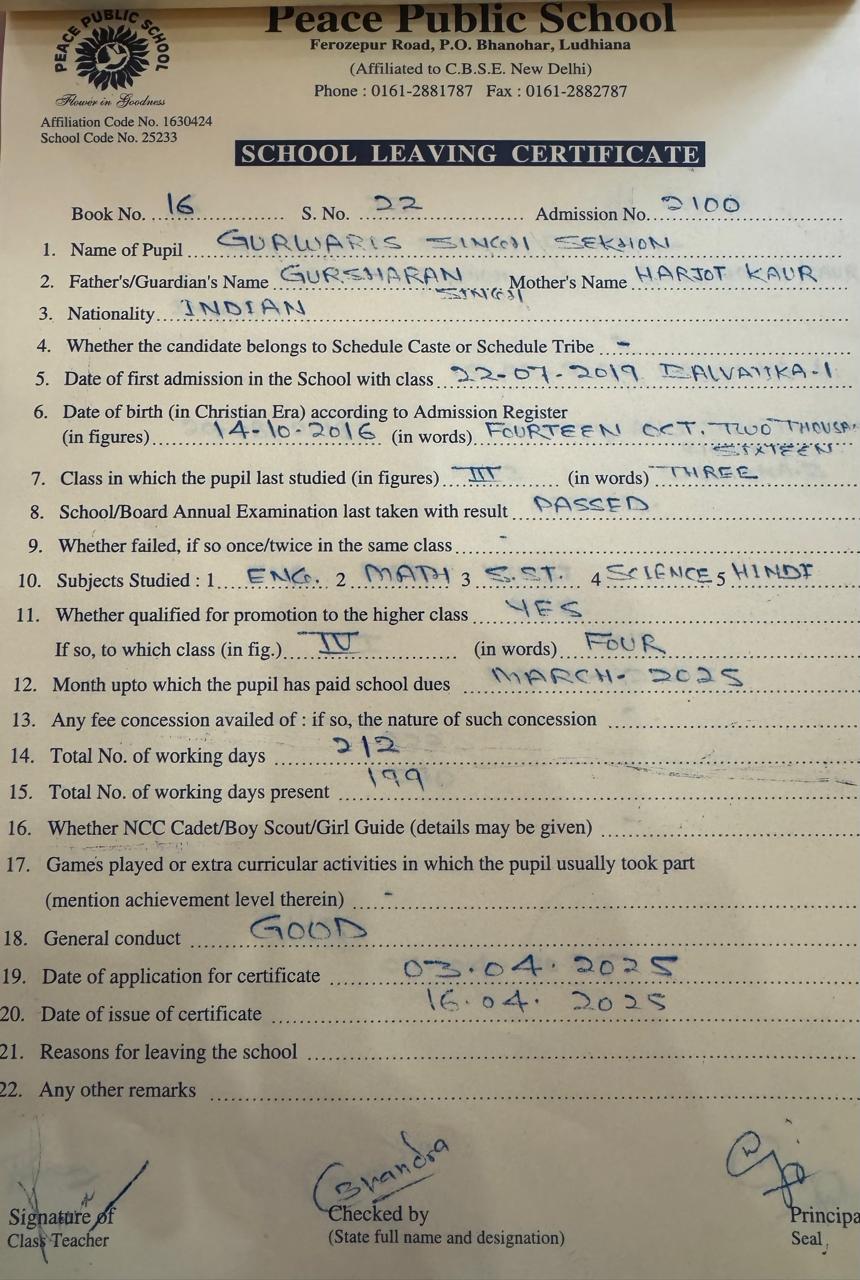 PEACE PUBLIC SCHOOL
Flower in Goodness
Peace Public School
Ferozepur Road, P.O. Bhanohar, Ludhiana
(Affiliated to C.B.S.E. New Delhi)
Phone : 0161-2881787 Fax : 0161-2882787
Affiliation Code No. 1630424
School Code No. 25233
SCHOOL LEAVING CERTIFICATE
Book No. 16 S. No. 22 Admission No. 2100
1. Name of Pupil GURWARIS SINGH SEKHON
2. Father's/Guardian's Name GURSHARAN SINGH Mother's Name HARJOT KAUR
3. Nationality INDIAN
4. Whether the candidate belongs to Schedule Caste or Schedule Tribe -
5. Date of first admission in the School with class 22-07-2019 BALVATIKA-I
6. Date of birth (in Christian Era) according to Admission Register
(in figures) 14-10-2016 (in words) FOURTEEN OCT. TWO THOUSA
SIXTEEN
7. Class in which the pupil last studied (in figures) III (in words) THREE
8. School/Board Annual Examination last taken with result PASSED
9. Whether failed, if so once/twice in the same class -
10. Subjects Studied : 1 ENG. 2 MATH 3 S.ST. 4 SCIENCE 5 HINDI
11. Whether qualified for promotion to the higher class YES
If so, to which class (in fig.) IV (in words) FOUR
12. Month upto which the pupil has paid school dues MARCH- 2025
13. Any fee concession availed of : if so, the nature of such concession
14. Total No. of working days 212
15. Total No. of working days present 199
16. Whether NCC Cadet/Boy Scout/Girl Guide (details may be given)
17. Games played or extra curricular activities in which the pupil usually took part
(mention achievement level therein) -
18. General conduct GOOD
19. Date of application for certificate 03.04.2025
20. Date of issue of certificate 16.04.2025
21. Reasons for leaving the school
22. Any other remarks
Bhandra
Signature of
Class Teacher
Checked by
(State full name and designation)
Principa
Seal